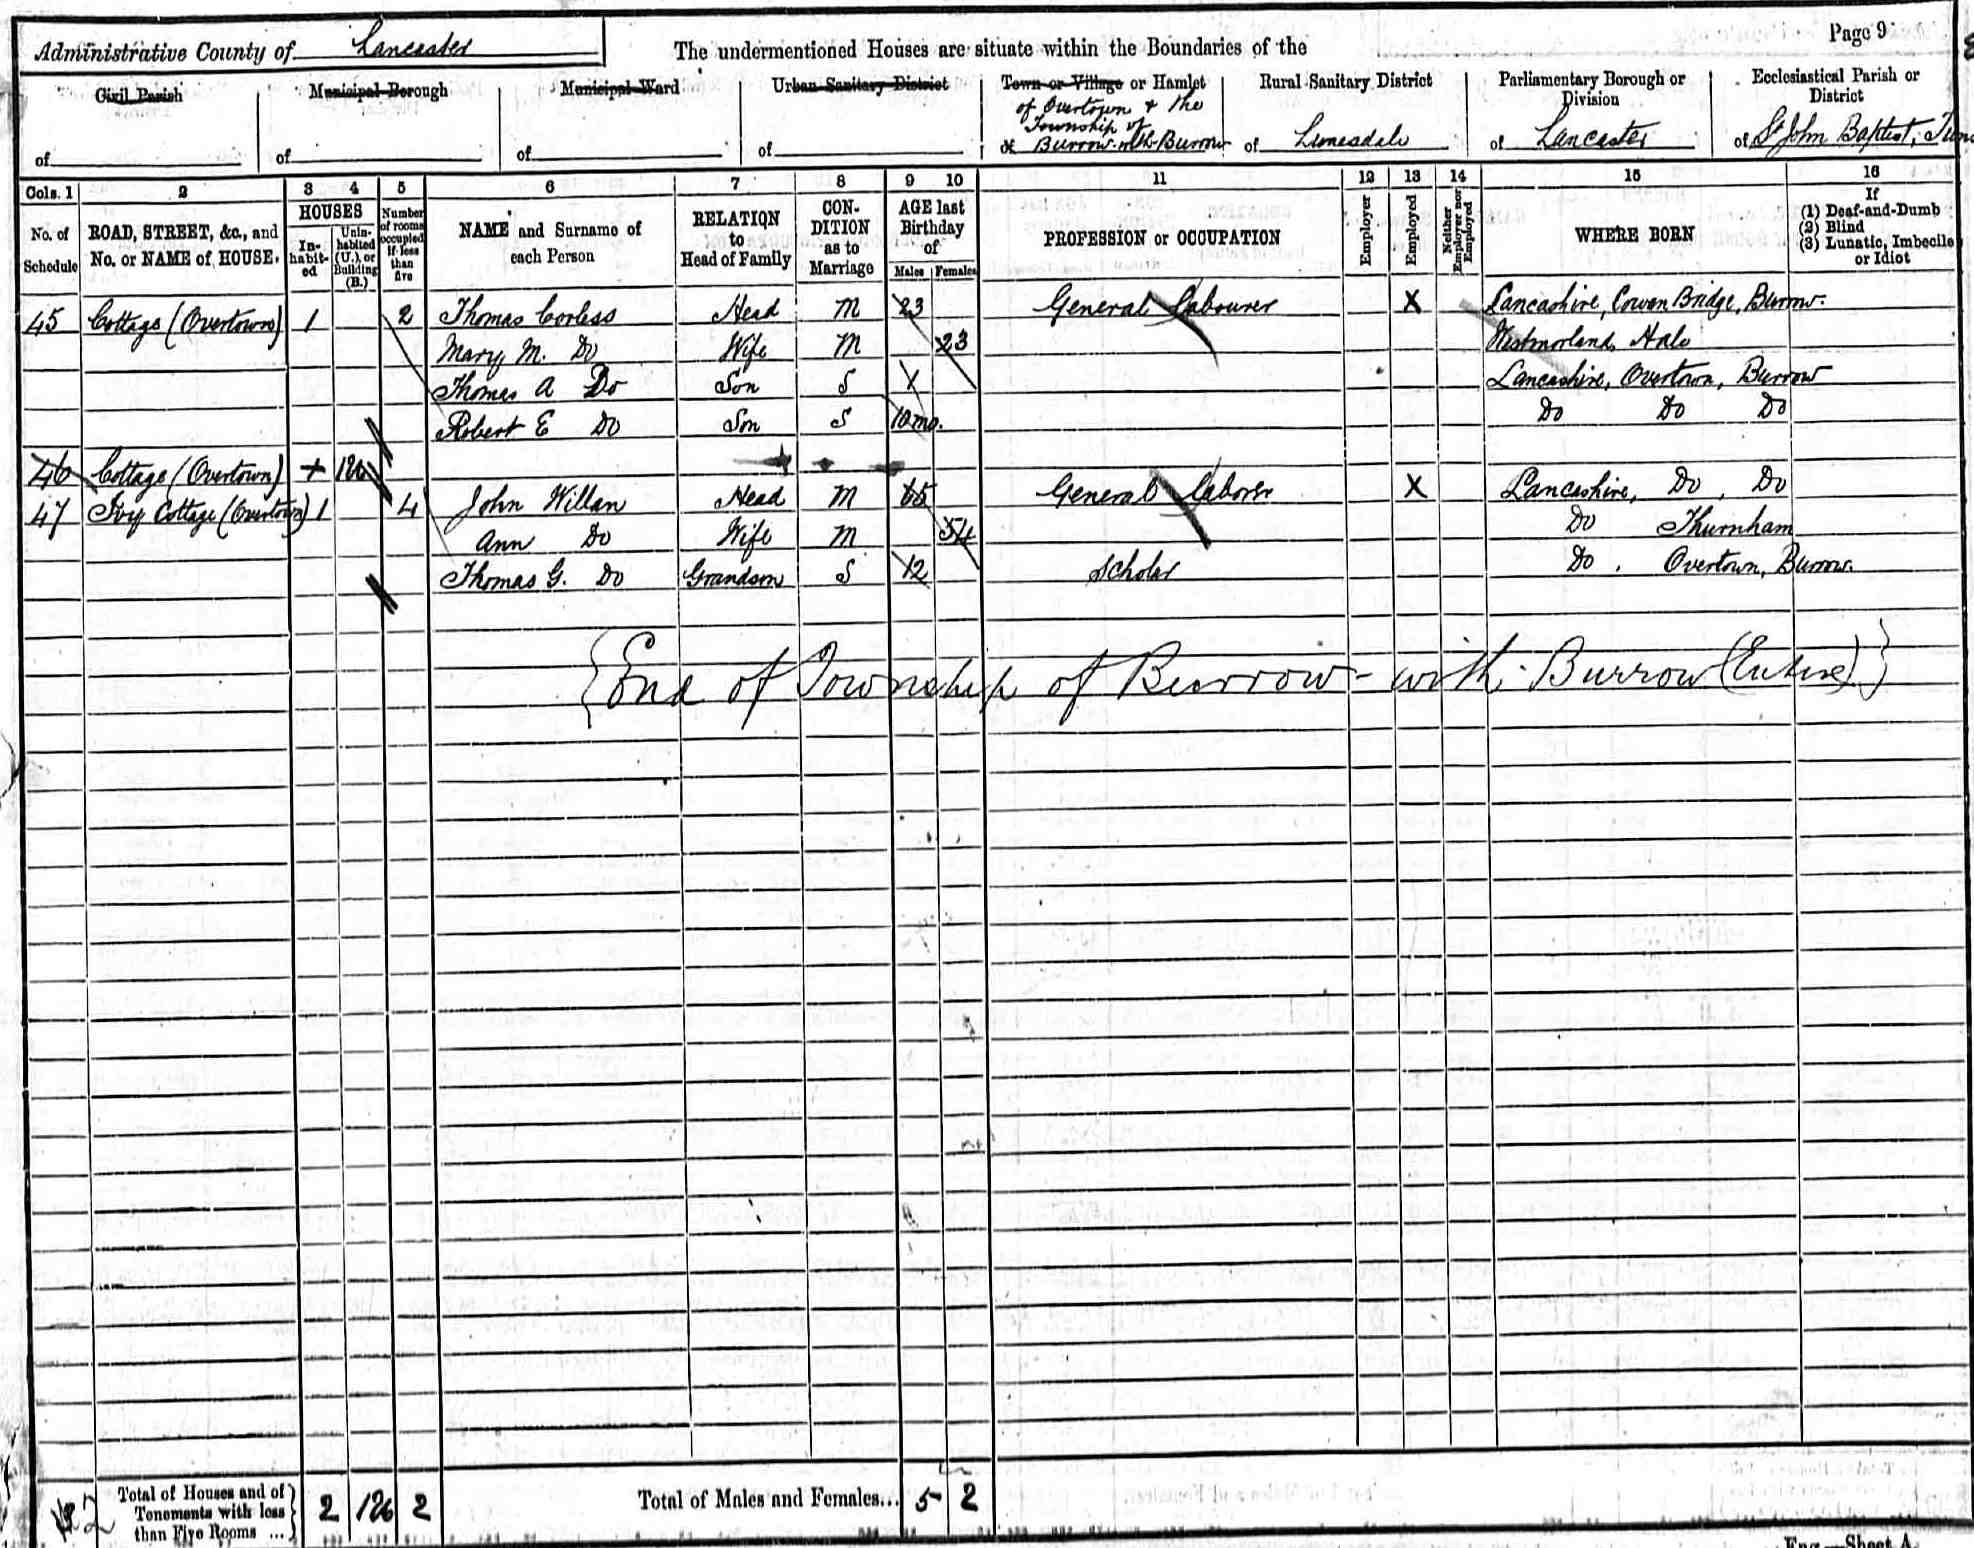 Page 9
Administrative County of Lancaster The undermentioned Houses are situate within the Boundaries of the
Civil Parish Municipal Borough Municipal Ward Urban Sanitary District Town or Village or Hamlet Rural Sanitary District Parliamentary Borough or Division Ecclesiastical Parish or District
of of of of of Overtown & the Township of Burrow-with-Burrow of Lunesdale of Lancaster of St John Baptist,
Cols. 1 2 3 4 5 6 7 8 9 10 11 12 13 14 15 16
No. of Schedule ROAD, STREET, &c., and No. or NAME of HOUSE. HOUSES Inhabited Uninhabited (U.), or Building (B.) Number of rooms occupied if less than five NAME and Surname of each Person RELATION to Head of Family CONDITION as to Marriage AGE last Birthday of Males Females PROFESSION or OCCUPATION Employer Employed Neither Employer nor Employed WHERE BORN If (1) Deaf-and-Dumb (2) Blind (3) Lunatic, Imbecile or Idiot
45 Cottage (Overtown) 1 2 Thomas Corless Head M 23 General Labourer X Lancashire, Cowan Bridge, Burrow.
Mary M. Do Wife M 23 Westmorland, Hale
Thomas A Do Son S Lancashire, Overtown, Burrow
Robert E Do Son S 10 mo. Do Do Do
46 Cottage (Overtown)
47 Ivy Cottage (Overtown) 1 4 John Willan Head M 65 General Laborer X Lancashire, Do, Do
Ann Do Wife M 54 Do Thurnham
Thomas G. Do Grandson S 12 Scholar Do. Overtown, Burrow.
{End of Township of Burrow-with-Burrow (Entire)}
Total of Houses and of Tenements with less than Five Rooms ... 2 2 Total of Males and Females... 5 2
Eng.—Sheet A.